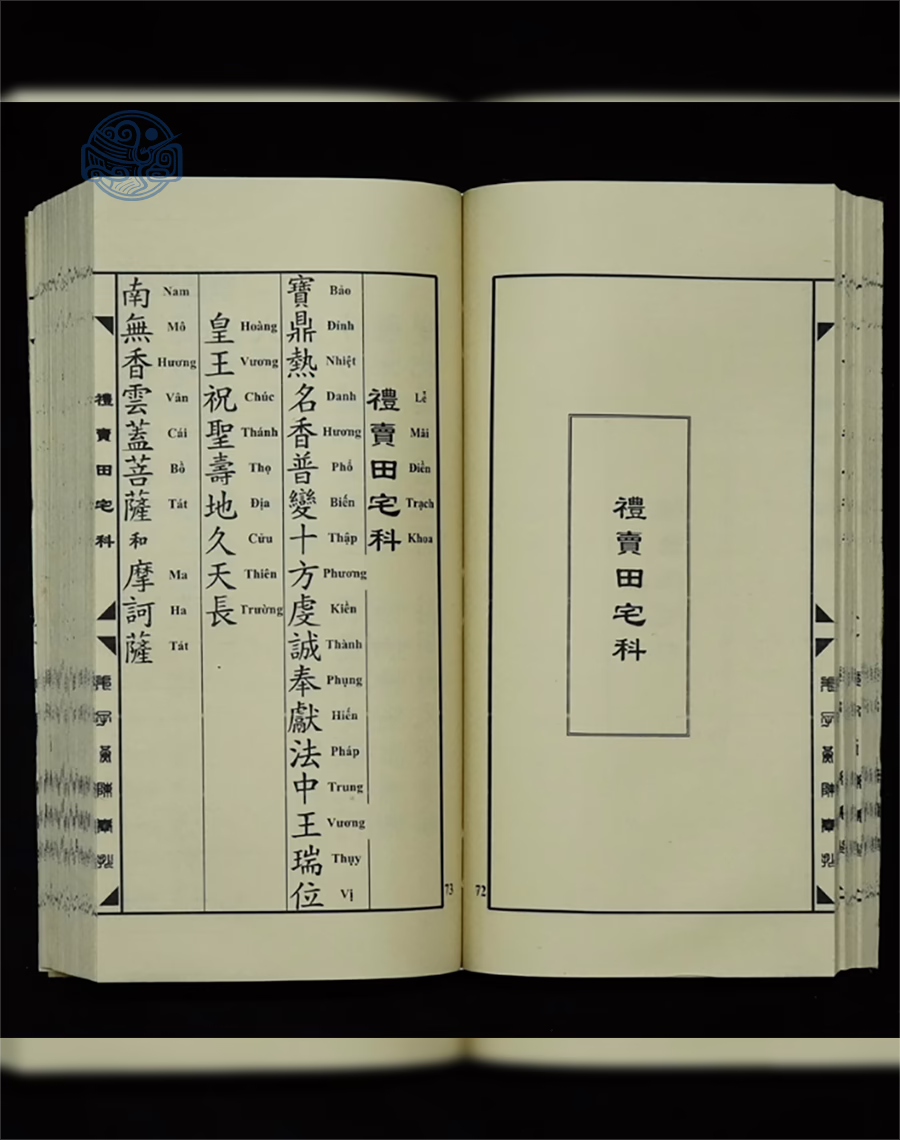 禮賣田宅科
72
禮賣田宅科
Lễ Mãi Điền Trạch Khoa
寶鼎熱名香普變十方虔誠奉獻法中王瑞位
Bảo Đỉnh Nhiệt Danh Hương Phổ Biến Thập Phương Kiền Thành Phụng Hiến Pháp Trung Vương Thụy Vị
皇王祝聖壽地久天長
Hoàng Vương Chúc Thánh Thọ Địa Cửu Thiên Trường
南無香雲蓋菩薩和摩訶薩
Nam Mô Hương Vân Cái Bồ Tát Ma Ha Tát
禮賣田宅科
73